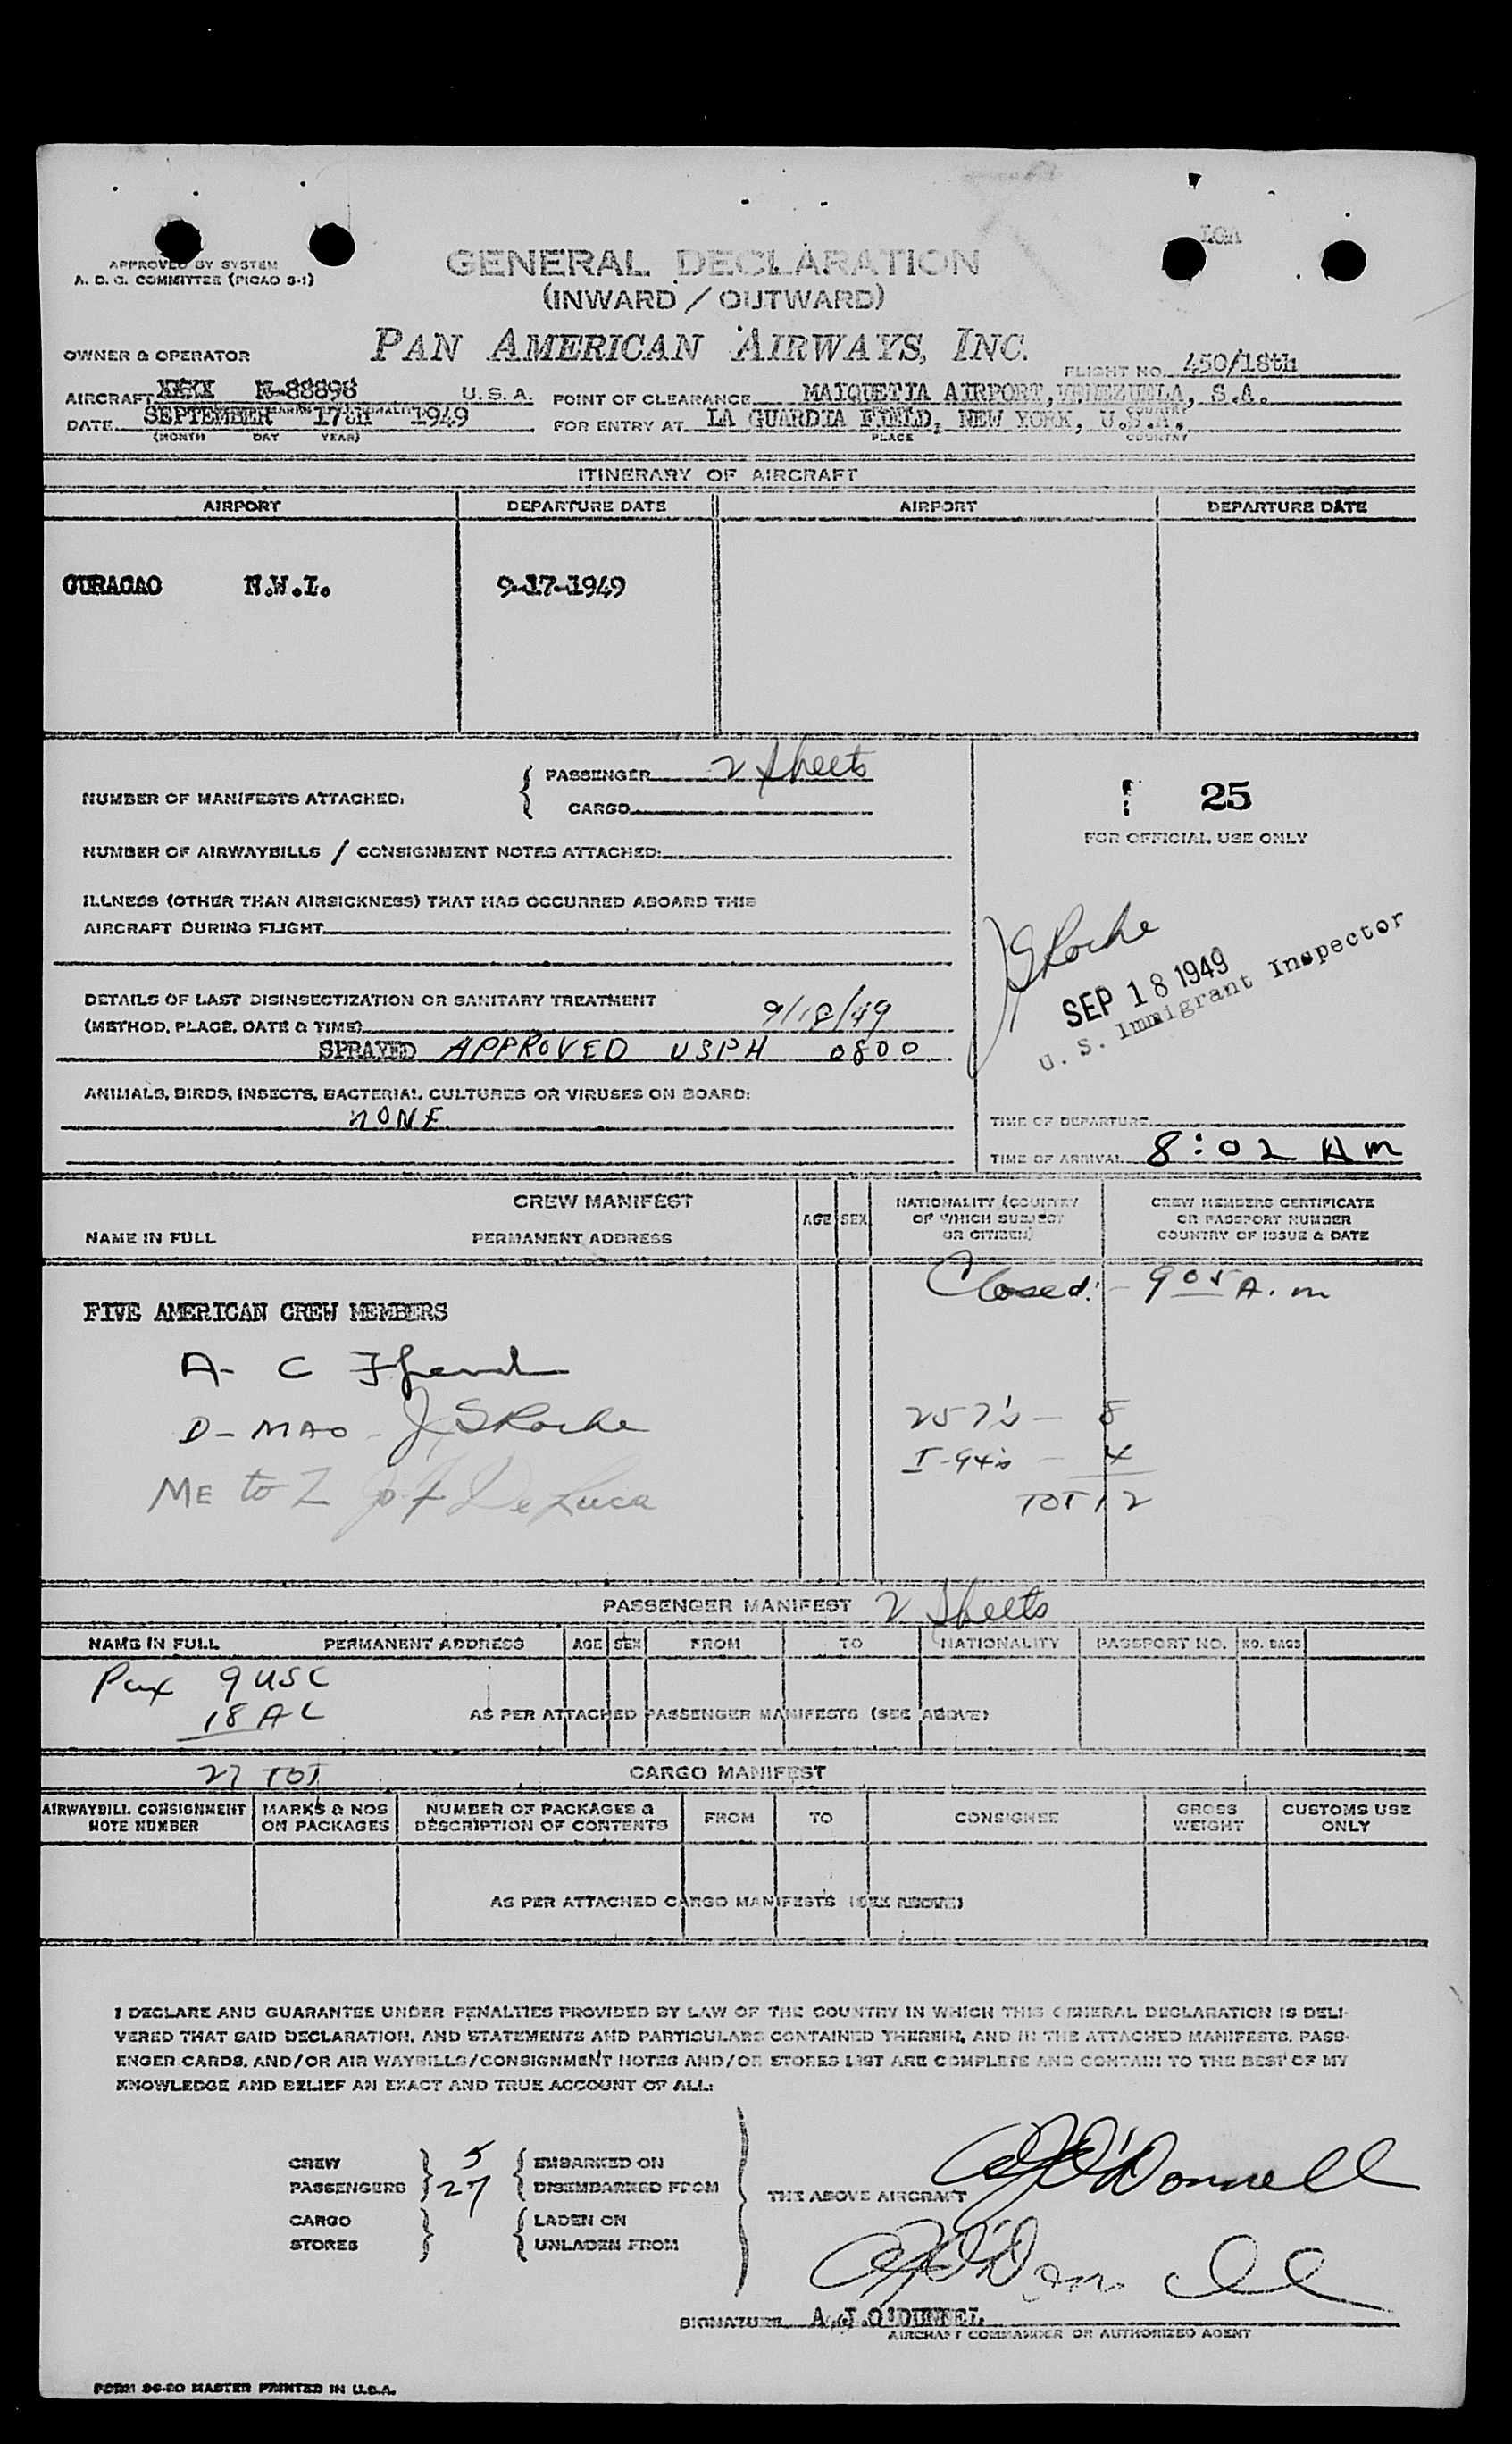 LGA
APPROVED BY SYSTEM
A. D. C. COMMITTEE (PICAO S-1)
GENERAL DECLARATION
(INWARD / OUTWARD)
OWNER & OPERATOR PAN AMERICAN AIRWAYS, INC.
FLIGHT NO. 450/18th
AIRCRAFT N-88898 U. S. A. POINT OF CLEARANCE MAIQUETIA AIRPORT, VENEZUELA, S.A.
COUNTRY
DATE SEPTEMBER 17th 1949 FOR ENTRY AT LA GUARDIA FIELD, NEW YORK, U.S.A.
(MONTH DAY YEAR) PLACE COUNTRY
ITINERARY OF AIRCRAFT
AIRPORT DEPARTURE DATE AIRPORT DEPARTURE DATE
CURACAO N.W.I. 9-17-1949
NUMBER OF MANIFESTS ATTACHED:
PASSENGER 2 Sheets
CARGO
25
FOR OFFICIAL USE ONLY
NUMBER OF AIRWAYBILLS / CONSIGNMENT NOTES ATTACHED:
ILLNESS (OTHER THAN AIRSICKNESS) THAT HAS OCCURRED ABOARD THIS
AIRCRAFT DURING FLIGHT
JSRoche
SEP 18 1949
U. S. Immigrant Inspector
DETAILS OF LAST DISINSECTIZATION OR SANITARY TREATMENT
(METHOD, PLACE, DATE & TIME) 9/18/49
SPRAYED APPROVED USPH 0800
ANIMALS, BIRDS, INSECTS, BACTERIAL CULTURES OR VIRUSES ON BOARD:
NONE
TIME OF DEPARTURE
TIME OF ARRIVAL 8:02 AM
CREW MANIFEST
NAME IN FULL PERMANENT ADDRESS AGE SEX
NATIONALITY (COUNTRY
OF WHICH SUBJECT
OR CITIZEN)
CREW MEMBERS CERTIFICATE
OR PASSPORT NUMBER
COUNTRY OF ISSUE & DATE
Closed: - 905 A. m
FIVE AMERICAN CREW MEMBERS
A - C
D - MAO - JSRoche
257's - 8
ME to Z De Luca
I-94's - 4
TOT 12
PASSENGER MANIFEST 2 Sheets
NAME IN FULL PERMANENT ADDRESS AGE SEX FROM TO NATIONALITY PASSPORT NO. NO. BAGS
Pax 9 USC
18 AL
AS PER ATTACHED PASSENGER MANIFESTS (SEE ABOVE)
27 TOT
CARGO MANIFEST
AIRWAYBILL CONSIGNMENT
NOTE NUMBER
MARKS & NOS
ON PACKAGES
NUMBER OF PACKAGES &
DESCRIPTION OF CONTENTS
FROM TO CONSIGNEE
GROSS
WEIGHT
CUSTOMS USE
ONLY
AS PER ATTACHED CARGO MANIFESTS (SEE ABOVE)
I DECLARE AND GUARANTEE UNDER PENALTIES PROVIDED BY LAW OF THE COUNTRY IN WHICH THIS GENERAL DECLARATION IS DELI-
VERED THAT SAID DECLARATION, AND STATEMENTS AND PARTICULARS CONTAINED THEREIN, AND IN THE ATTACHED MANIFESTS, PASS-
ENGER CARDS, AND/OR AIR WAYBILLS/CONSIGNMENT NOTES AND/OR STORES LIST ARE COMPLETE AND CONTAIN TO THE BEST OF MY
KNOWLEDGE AND BELIEF AN EXACT AND TRUE ACCOUNT OF ALL:
CREW 5 EMBARKED ON
PASSENGERS 27 DISEMBARKED FROM
CARGO LADEN ON
STORES UNLADEN FROM
THE ABOVE AIRCRAFT
AJO'Donnell
AJO'Donnell
SIGNATURE A.J.O'DONNEL
AIRCRAFT COMMANDER OR AUTHORIZED AGENT
FORM 96-20 MASTER PRINTED IN U.S.A.